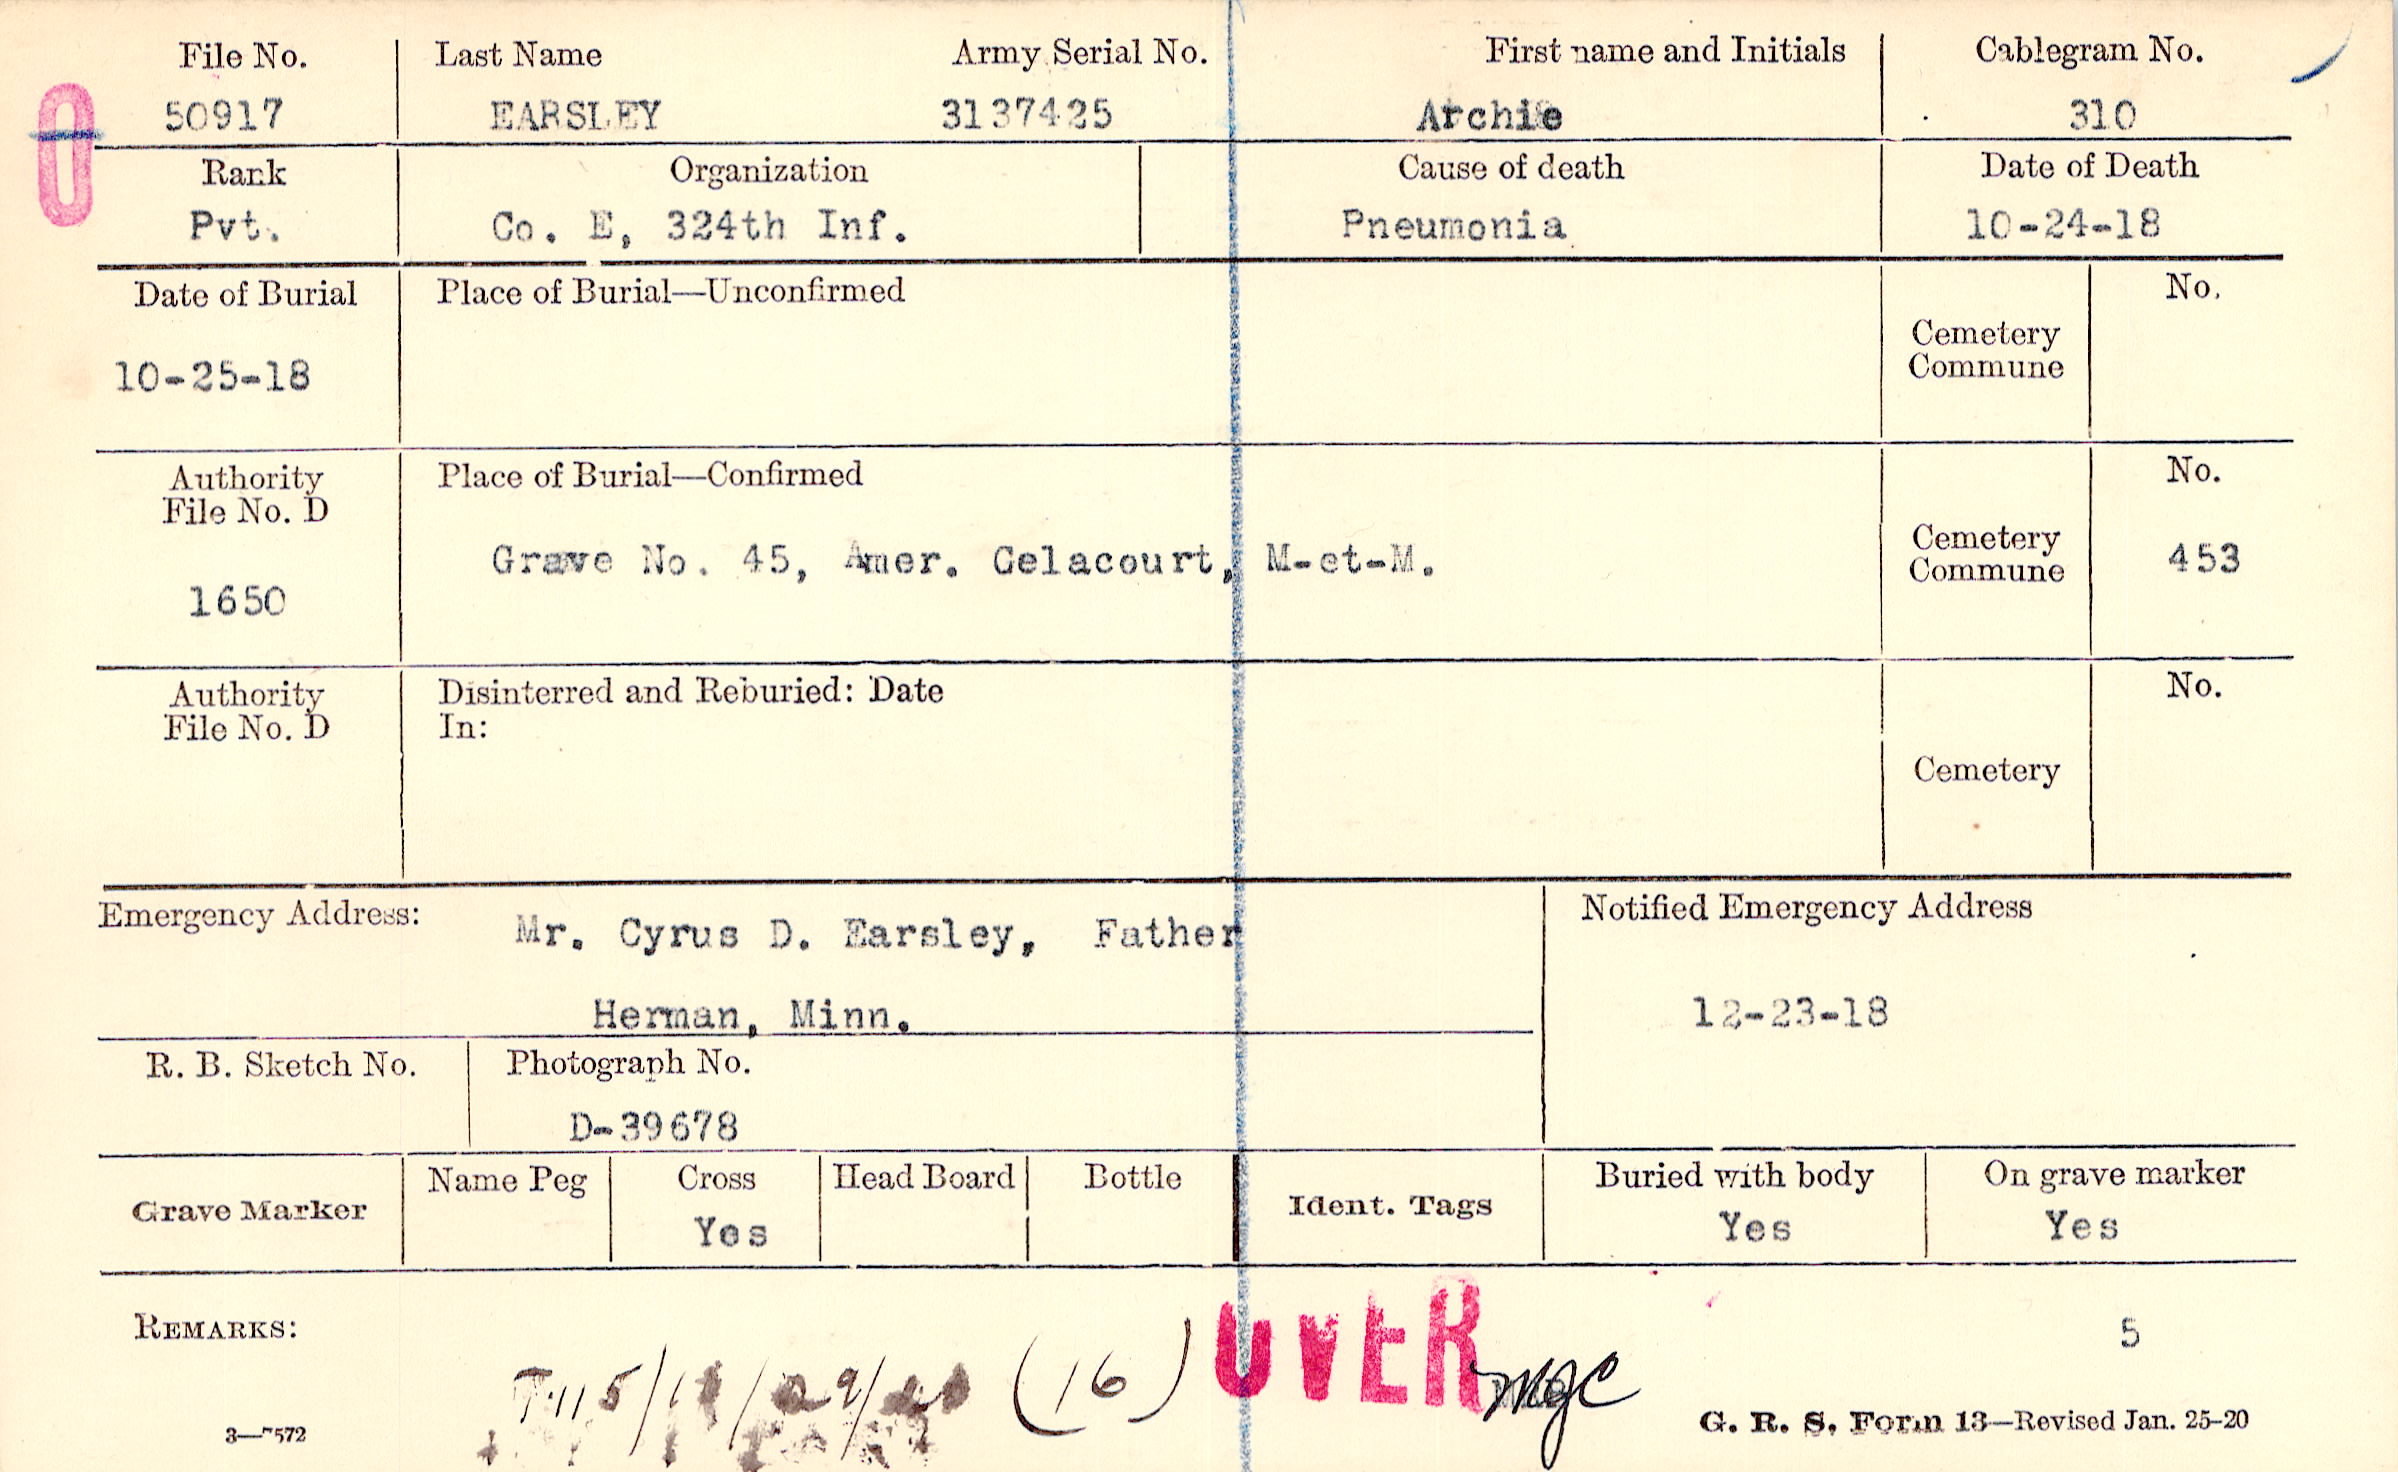 File No. Last Name Army Serial No. First name and Initials Cablegram No.
50917 EARSLEY 3137425 Archie 310
0
Rank Organization Cause of death Date of Death
Pvt. Co. E, 324th Inf. Pneumonia 10-24-18
Date of Burial Place of Burial—Unconfirmed No.
Cemetery
Commune
10-25-18
Authority Place of Burial—Confirmed No.
File No. D
Cemetery
Grave No. 45, Amer. Celacourt, M-et-M. 453
Commune
1650
Authority Disinterred and Reburied: Date No.
File No. D In:
Cemetery
Emergency Address: Mr. Cyrus D. Earsley, Father Notified Emergency Address
Herman, Minn. 12-23-18
R. B. Sketch No. Photograph No.
D-39678
Grave Marker Name Peg Cross Head Board Bottle Ident. Tags Buried with body On grave marker
Yes Yes Yes
REMARKS: OVER 5
(16) MgC
3—7572 G. R. S. Form 13—Revised Jan. 25-20